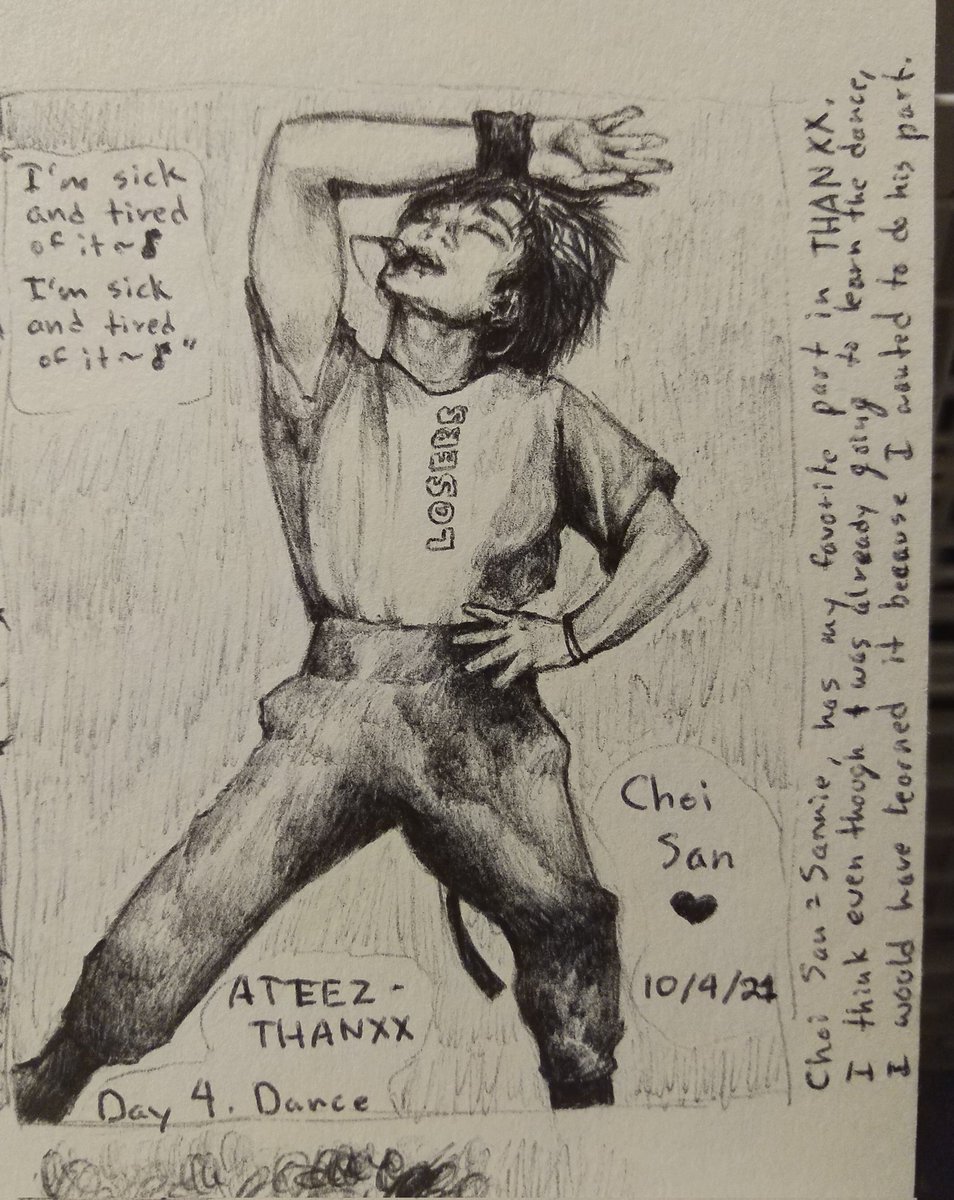 I'm sick
and tired
of it~♪
I'm sick
and tired
of it~♪"
LOSERS
Choi
San
♥
10/4/21
ATEEZ -
THANXX
Day 4. Dance
Choi San = Sannie, has my favorite part in THANXX.
I think even though I was already going to learn the dance,
I would have learned it because I wanted to do his part.